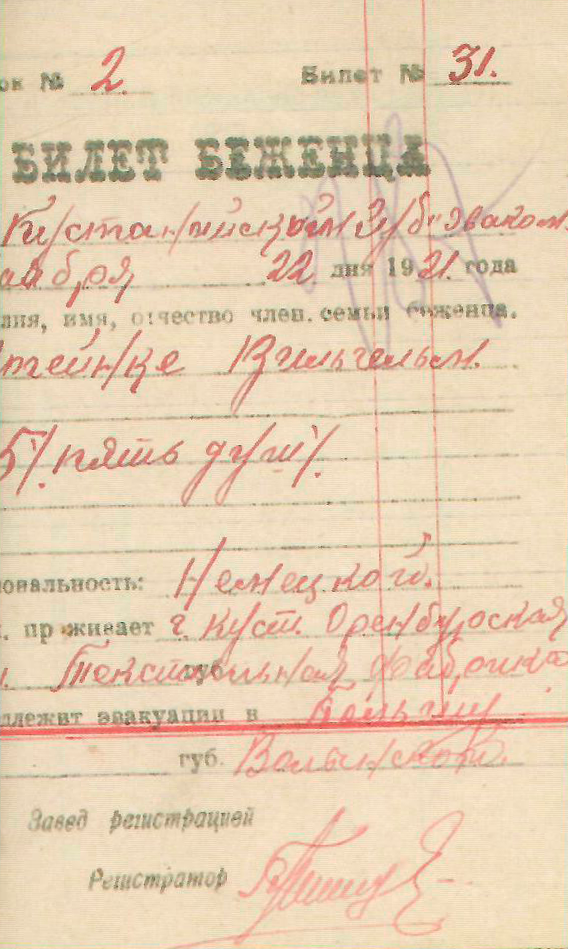 ок № 2. Билет № 31.
БИЛЕТ БЕЖЕНЦА
Кустанайской Губэваком
аября 22 дня 1921 года
лия, имя, отчество член. семьи беженца.
тейнке Вильгельм.
5/ пять душ/.
иональность: Немецкой.
. проживает г. Куст. Оренбургская
Текстильная фабрика
длежит эвакуации в Польшу
губ. Волынской.
Завед регистрацией
Регистратор